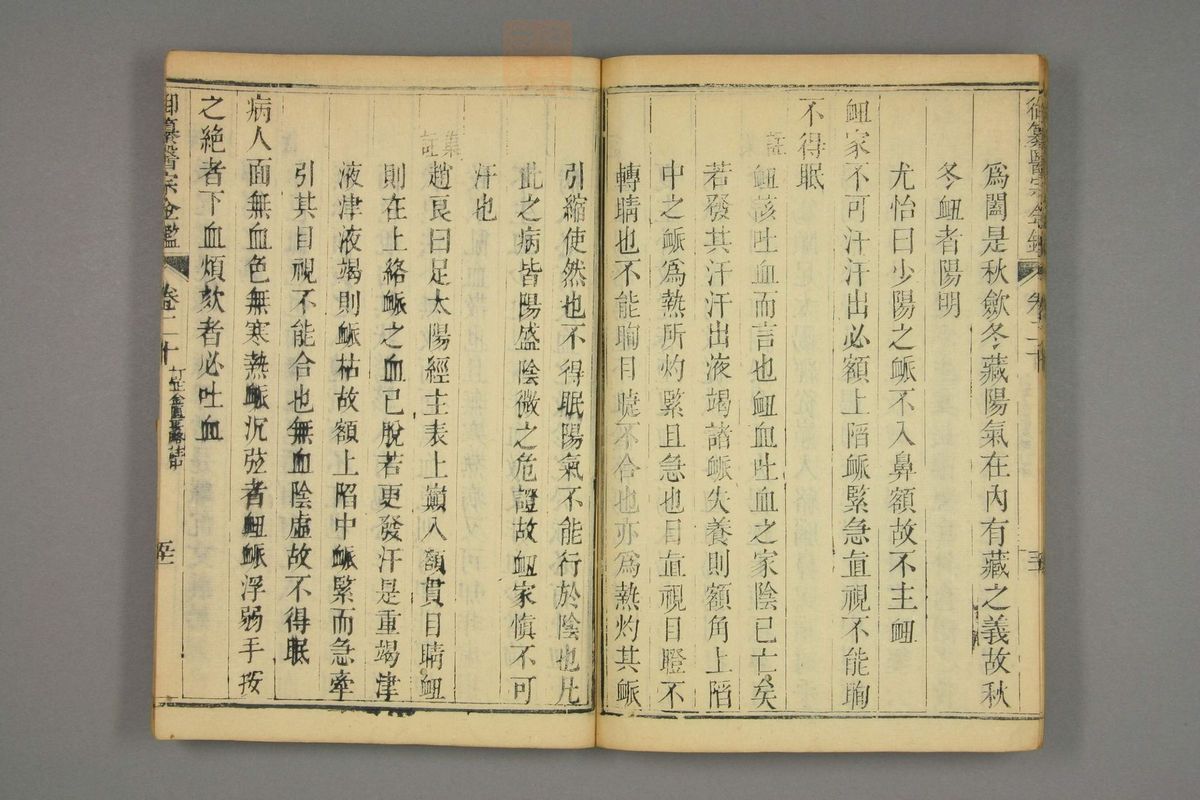 御纂醫宗金鑑 卷二十
為闔是秋斂冬藏陽氣在內有藏之義故秋
冬衄者陽明
尤怡曰少陽之脈不入鼻額故不主衄
衄家不可汗汗出必額上陷脈緊急直視不能眴
不得眠
註
衄該吐血而言也衄血吐血之家陰已亡矣
若發其汗汗出液竭諸脈失養則額角上陷
中之脈為熱所灼緊且急也目直視目瞪不
轉睛也不能眴目睫不合也亦為熱灼其脈
引縮使然也不得眠陽氣不能行於陰也凡
此之病皆陽盛陰微之危證故衄家慎不可
汗也
集註
趙良曰足太陽經主表上巔入額貫目睛衄
則在上絡脈之血已脫若更發汗是重竭津
液津液竭則脈枯故額上陷中脈緊而急牽
引其目視不能合也無血陰虛故不得眠
病人面無血色無寒熱脈沉弦者衄脈浮弱手按
之絕者下血煩欬者必吐血
御纂醫宗金鑑 卷二十 訂正金匱要略註中